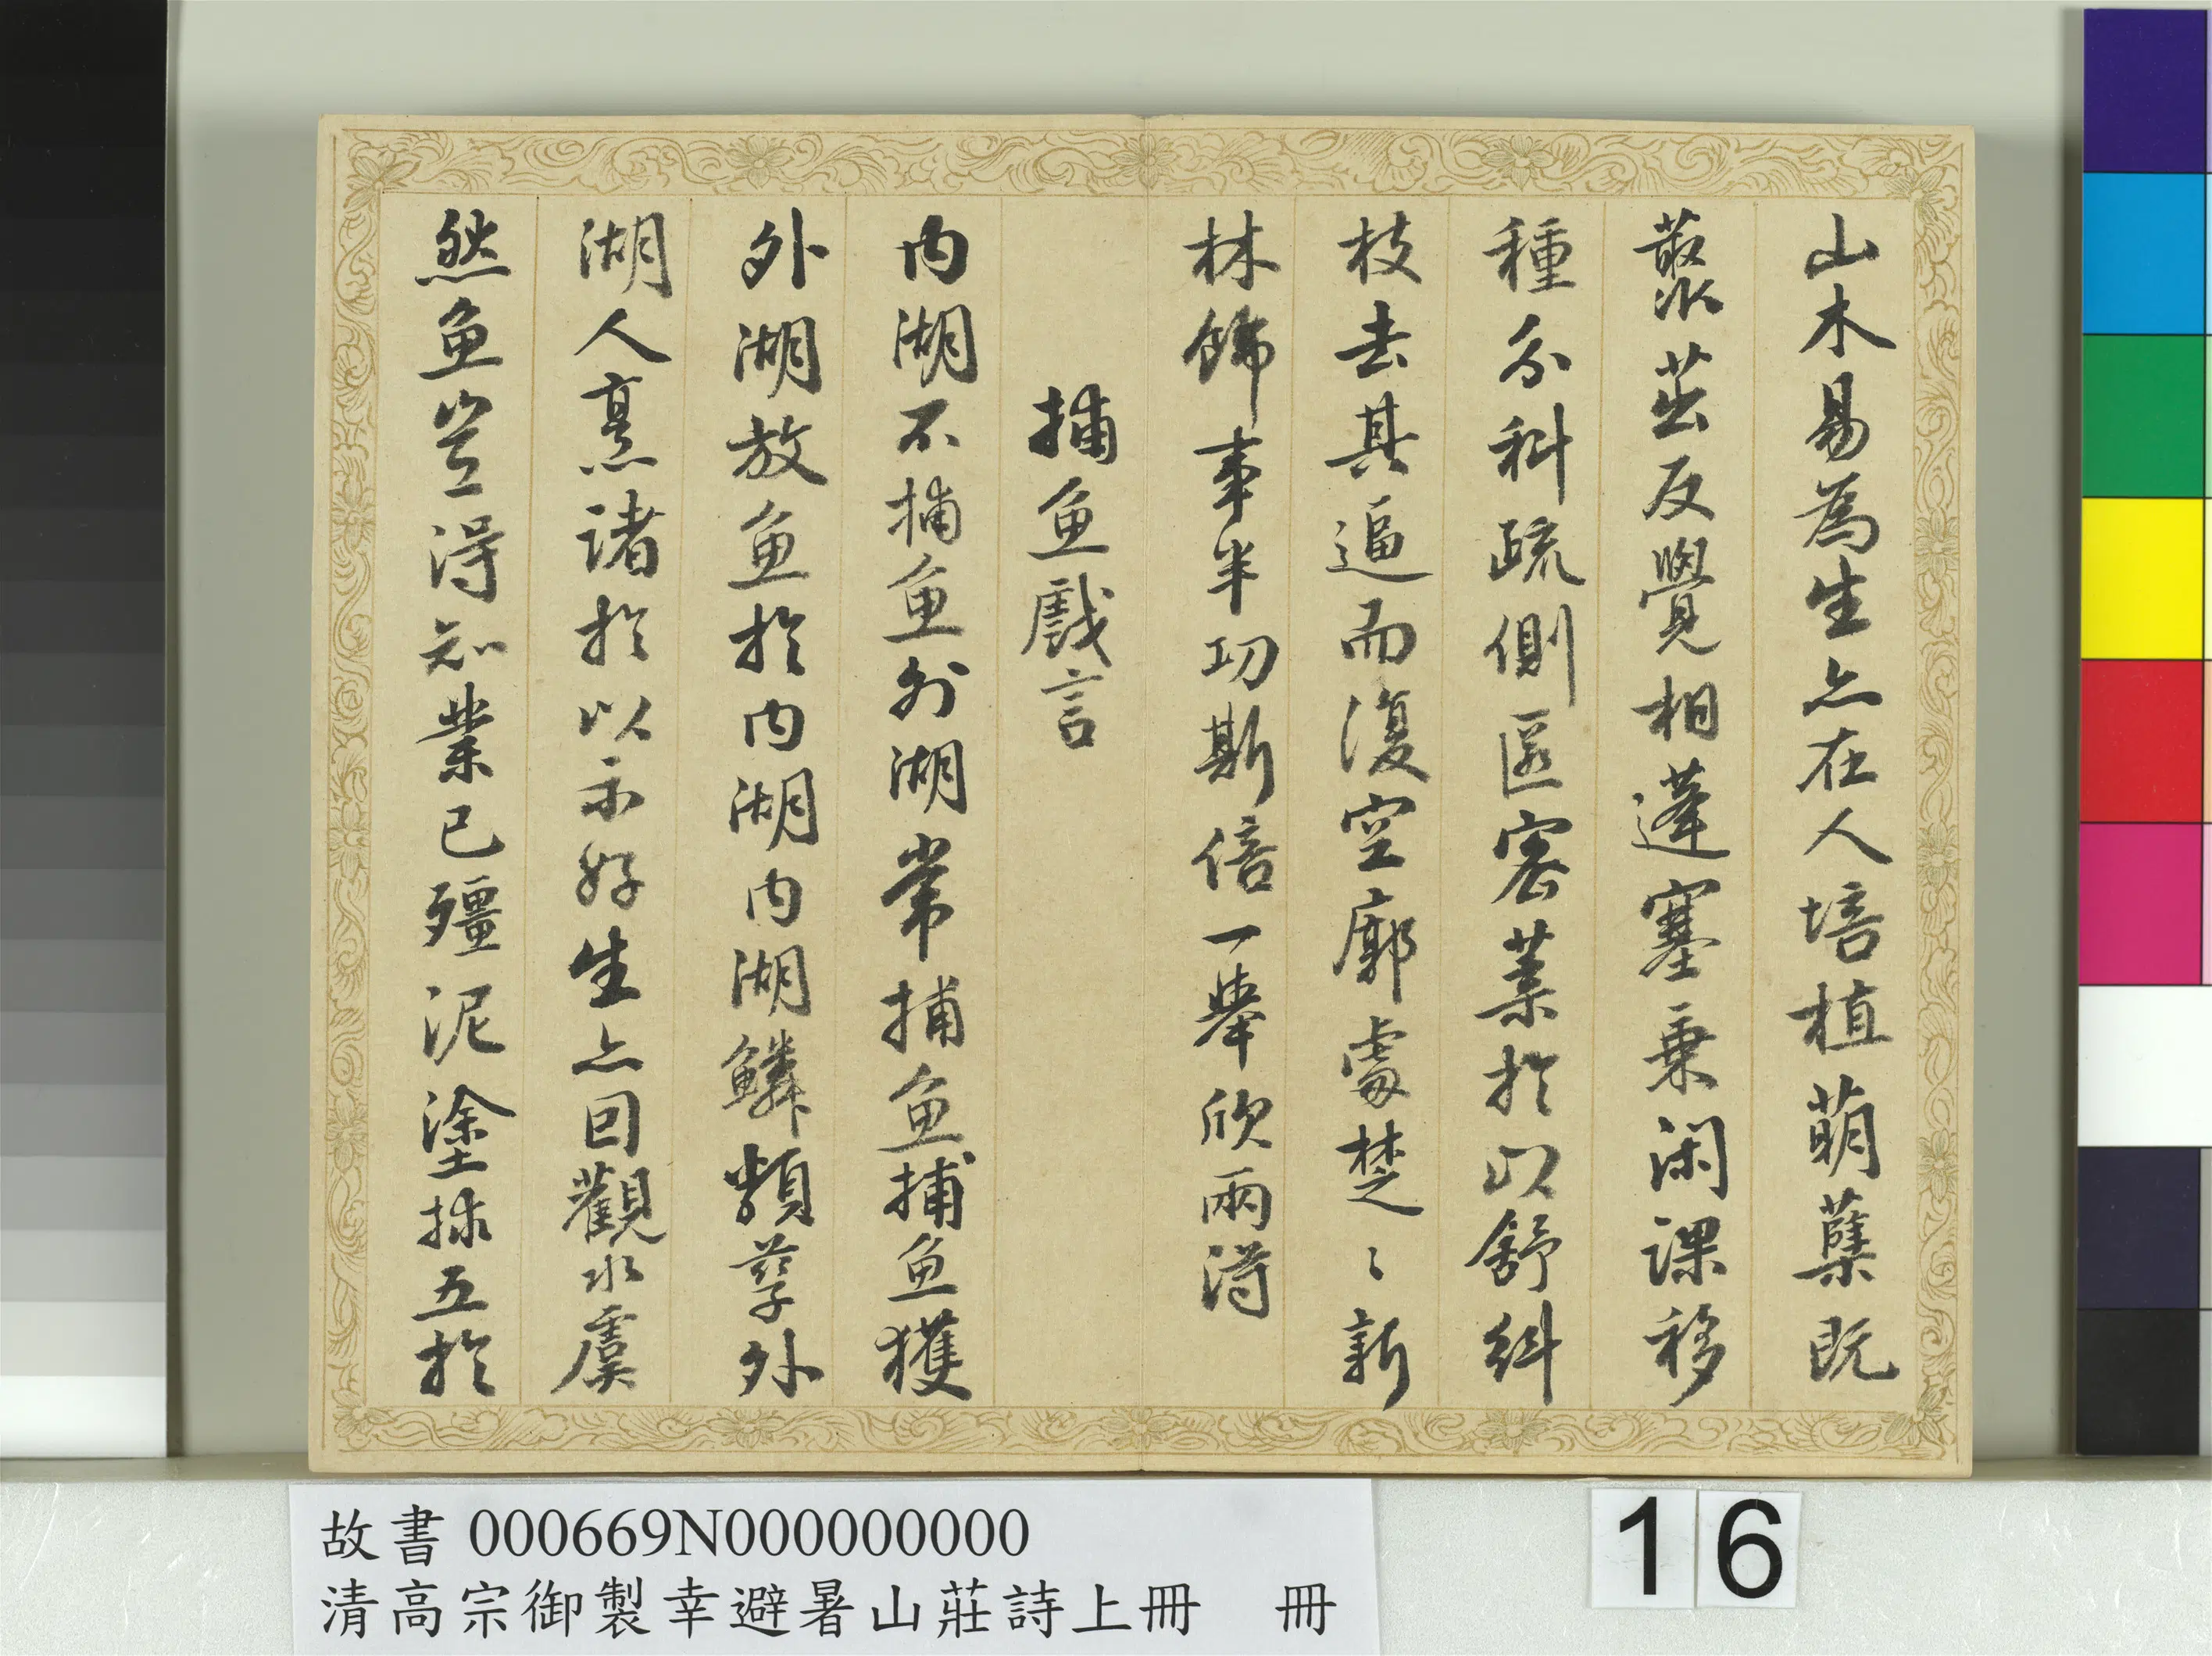 山木易為生亦在人培植萌蘖既
叢茁反覺相蓬塞乗閑課移
種分科疏側匿密葉於以舒糾
枝去其逼而復空廓處楚〻新
林飾事半功斯倍一舉欣兩得
捕魚戲言
內湖不捕魚外湖常捕魚捕魚獲
外湖放魚於內湖內湖鱗類孳外
湖人烹諸於以示好生亦回觀水虞
然魚豈得知業已殭泥塗捄五於
故書 000669N000000000
清高宗御製幸避暑山莊詩上冊 冊
16